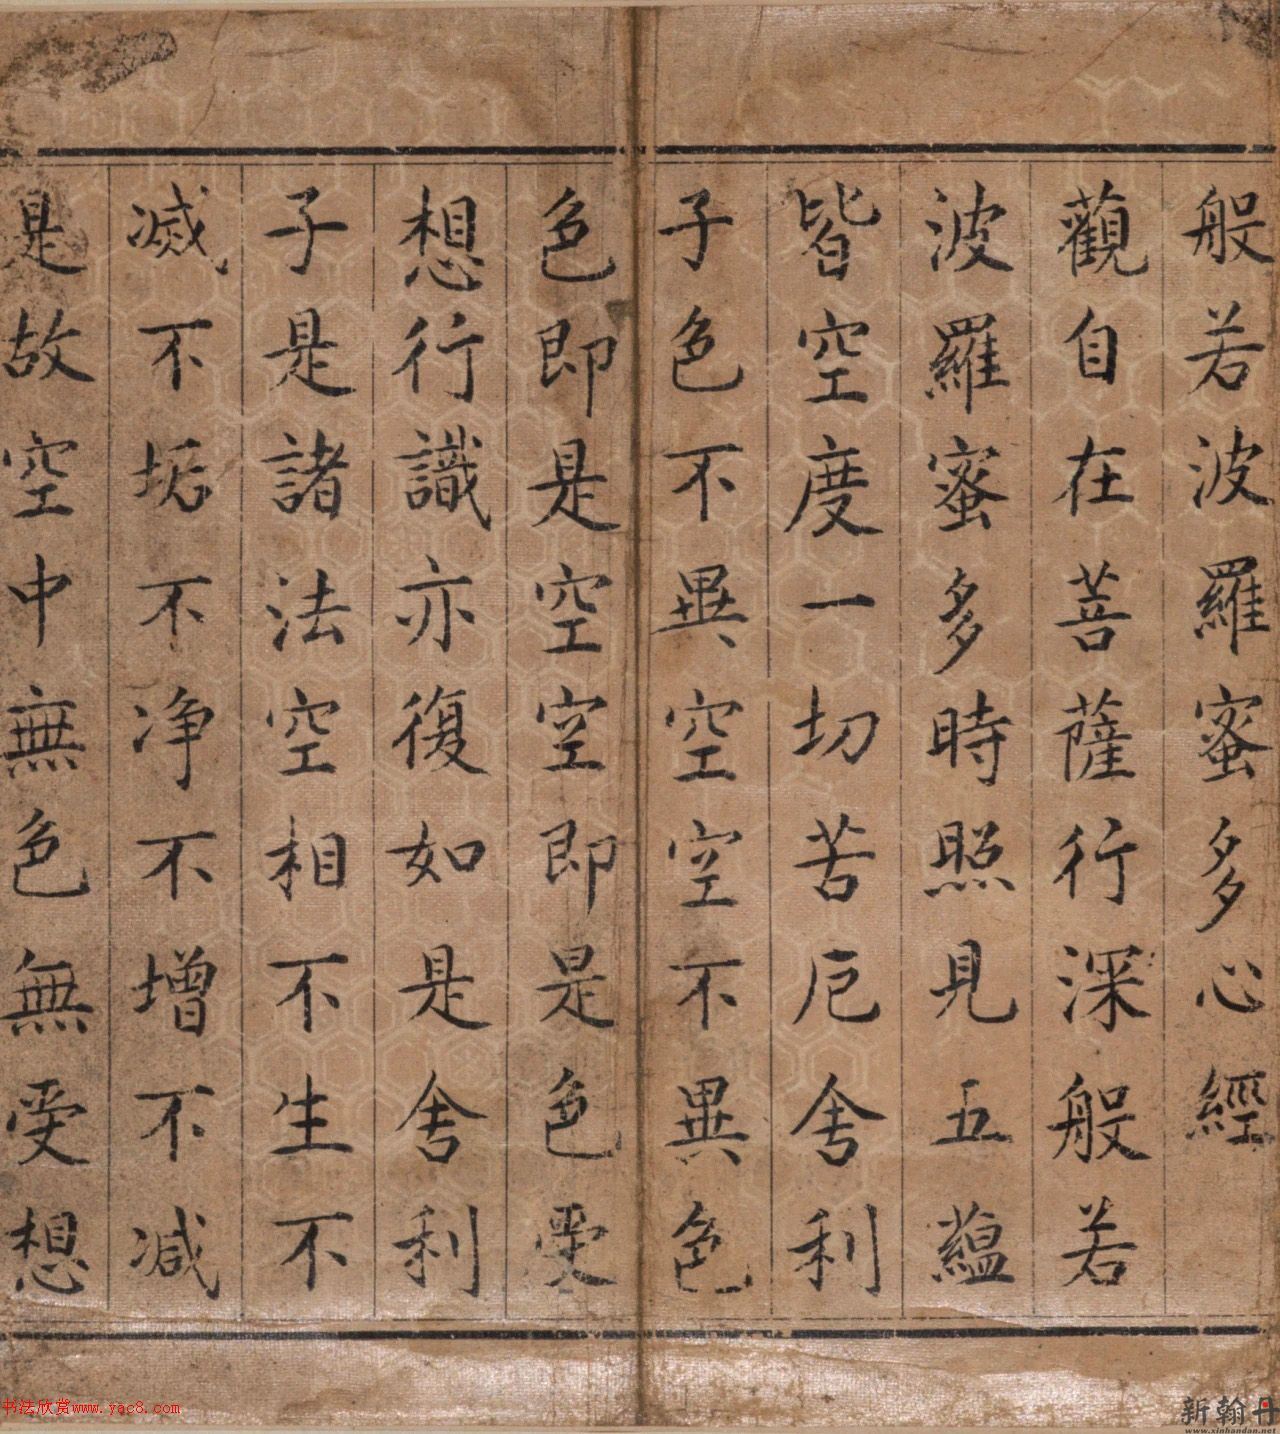 般若波羅蜜多心經
觀自在菩薩行深般若
波羅蜜多時照見五蘊
皆空度一切苦厄舍利
子色不異空空不異色
色即是空空即是色受
想行識亦復如是舍利
子是諸法空相不生不
滅不垢不净不增不減
是故空中無色無受想
书法欣赏www.yac8.com
新翰丹
www.xinhandan.net